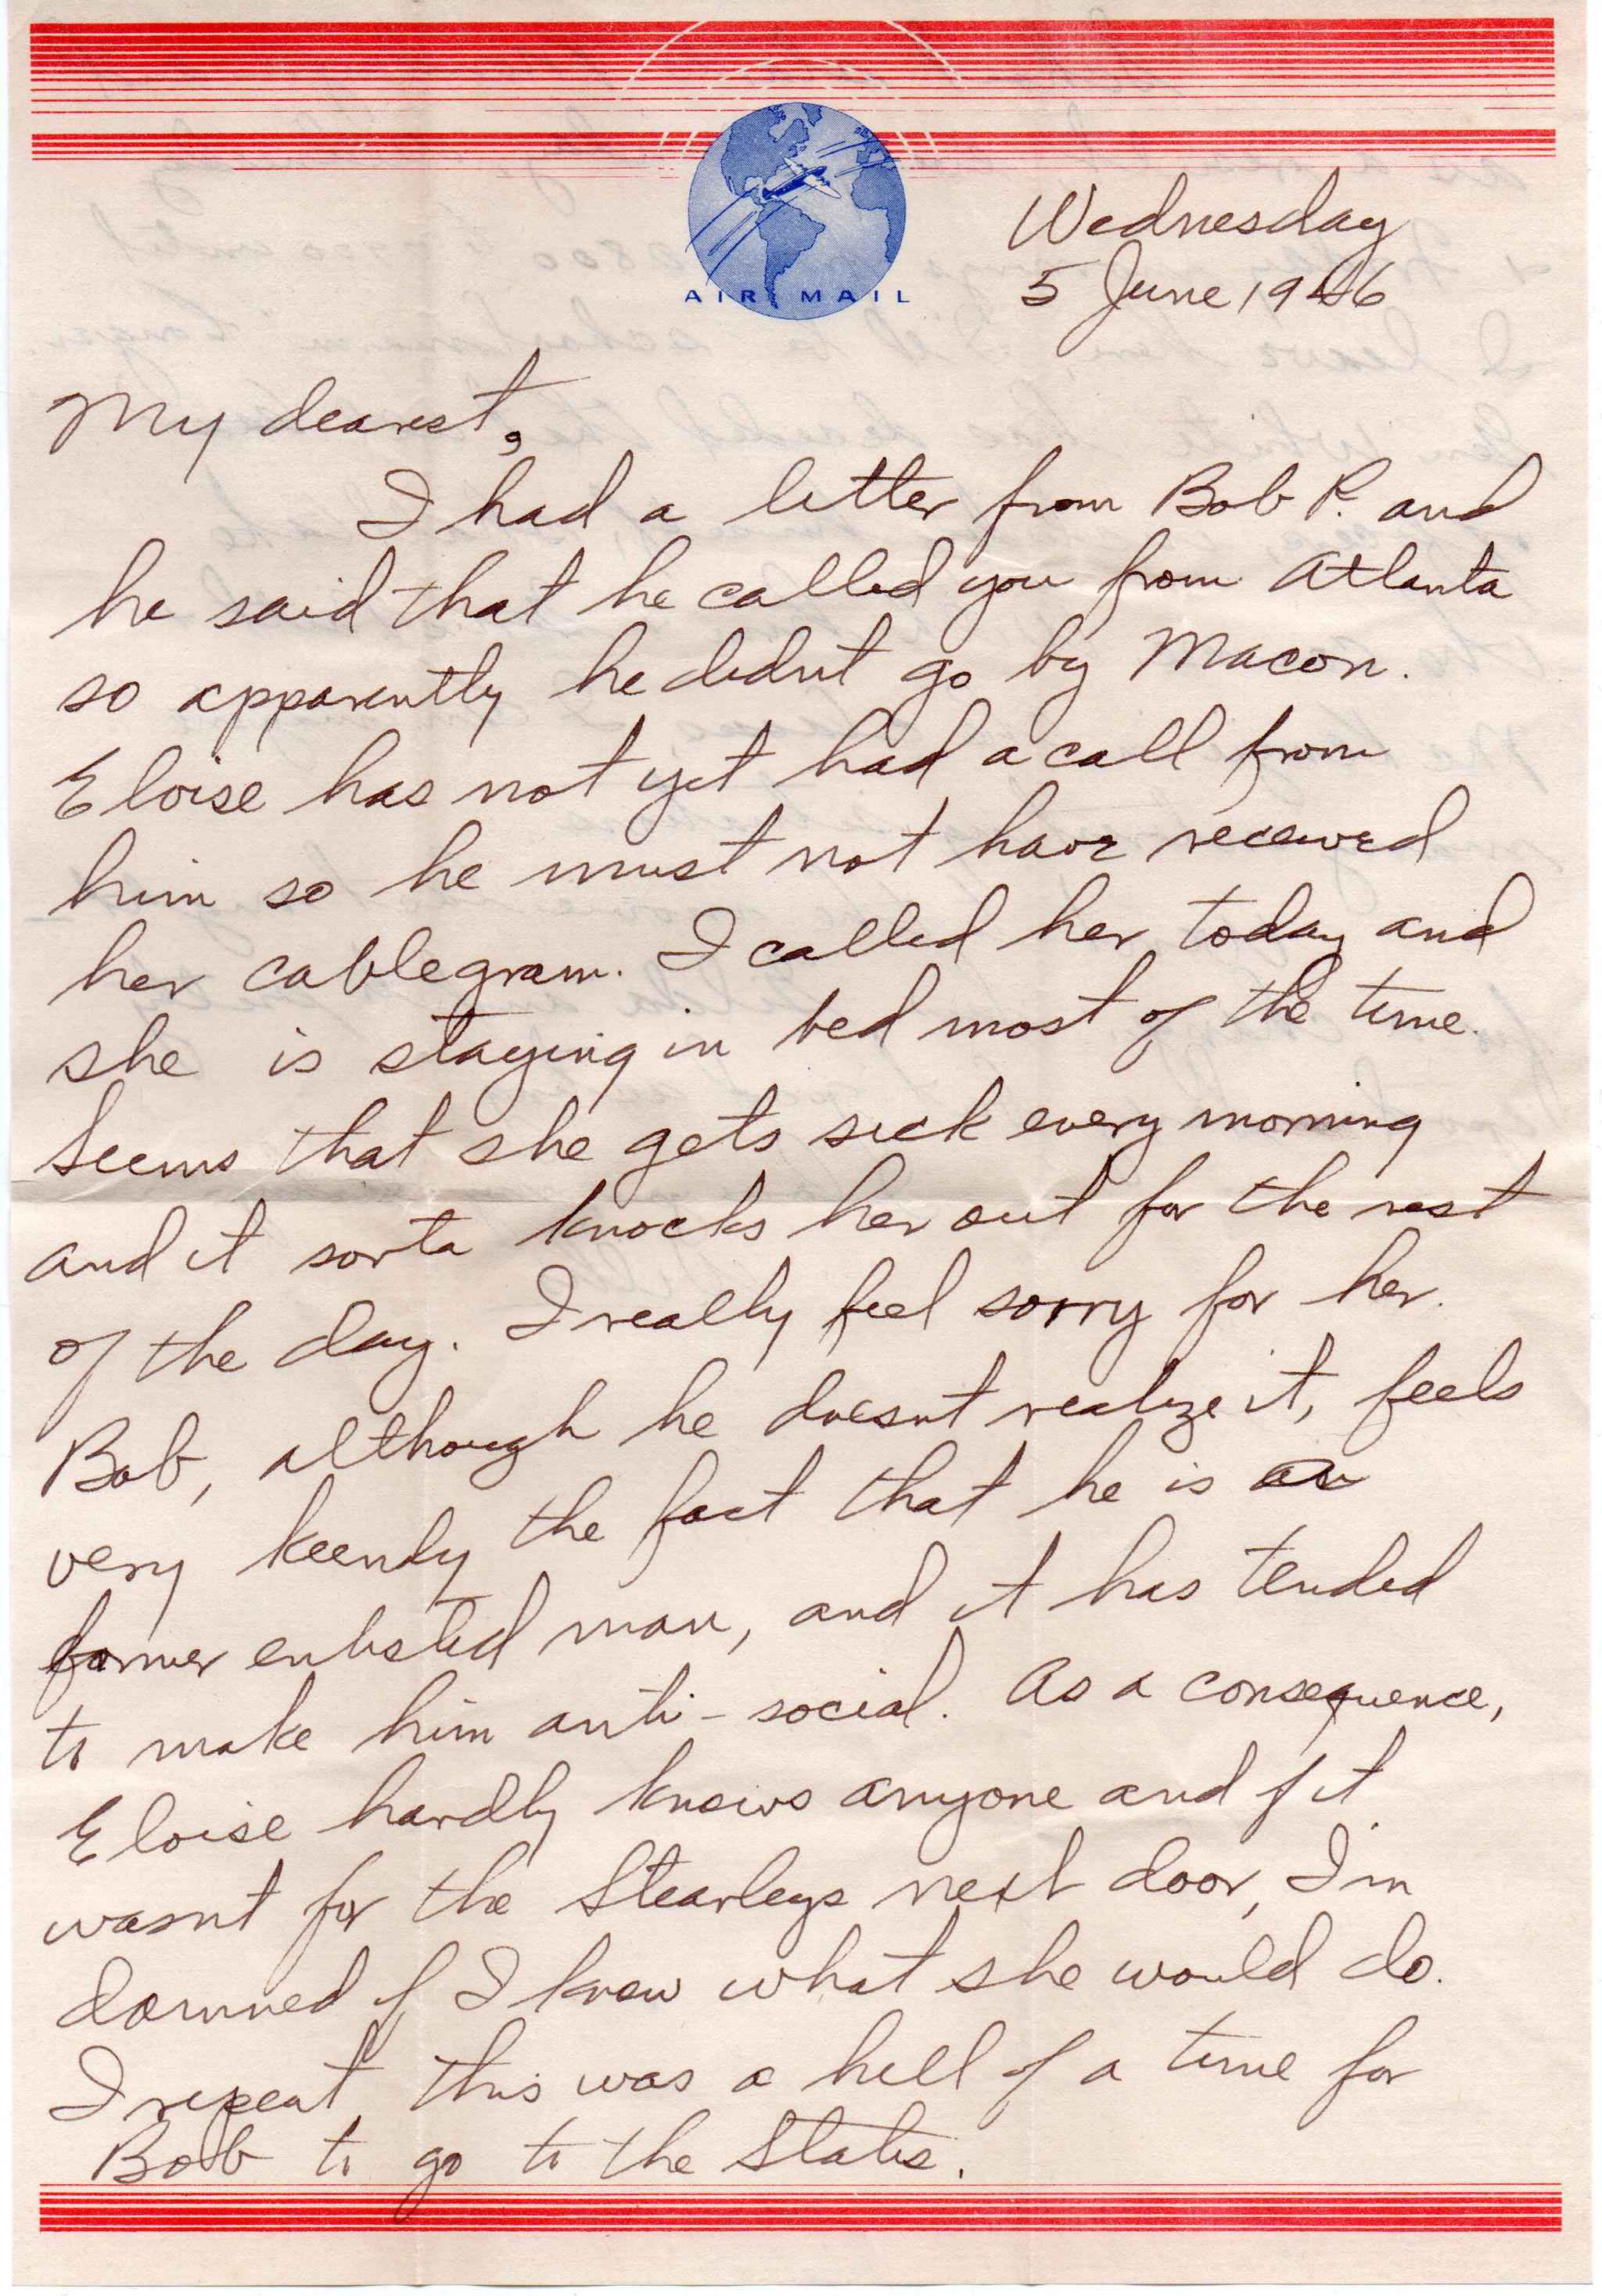 AIR MAIL
Wednesday
5 June 1946
My dearest,
I had a letter from Bob P. and
he said that he called you from Atlanta
so apparently he didnt go by Macon.
Eloise has not yet had a call from
him so he must not have received
her cablegram. I called her today and
she is staying in bed most of the time.
Seems that she gets sick every morning
and it sorta knocks her out for the rest
of the day. I really feel sorry for her.
Bob, although he doesnt realize it, feels
very keenly the fact that he is a
former enlisted man, and it has tended
to make him anti-social. As a consequence,
Eloise hardly knows anyone and if it
wasnt for the Stearleys next door, I'm
damned if I know what she would do.
I repeat this was a hell of a time for
Bob to go to the States.